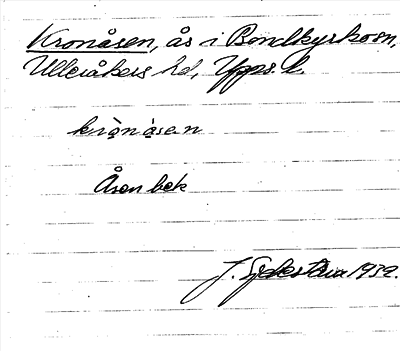 Kronåsen, ås i Bondkyrkosn,
Ulleråkers hd, Upps. l.
krònásen
Åsen bek
J. 1932.